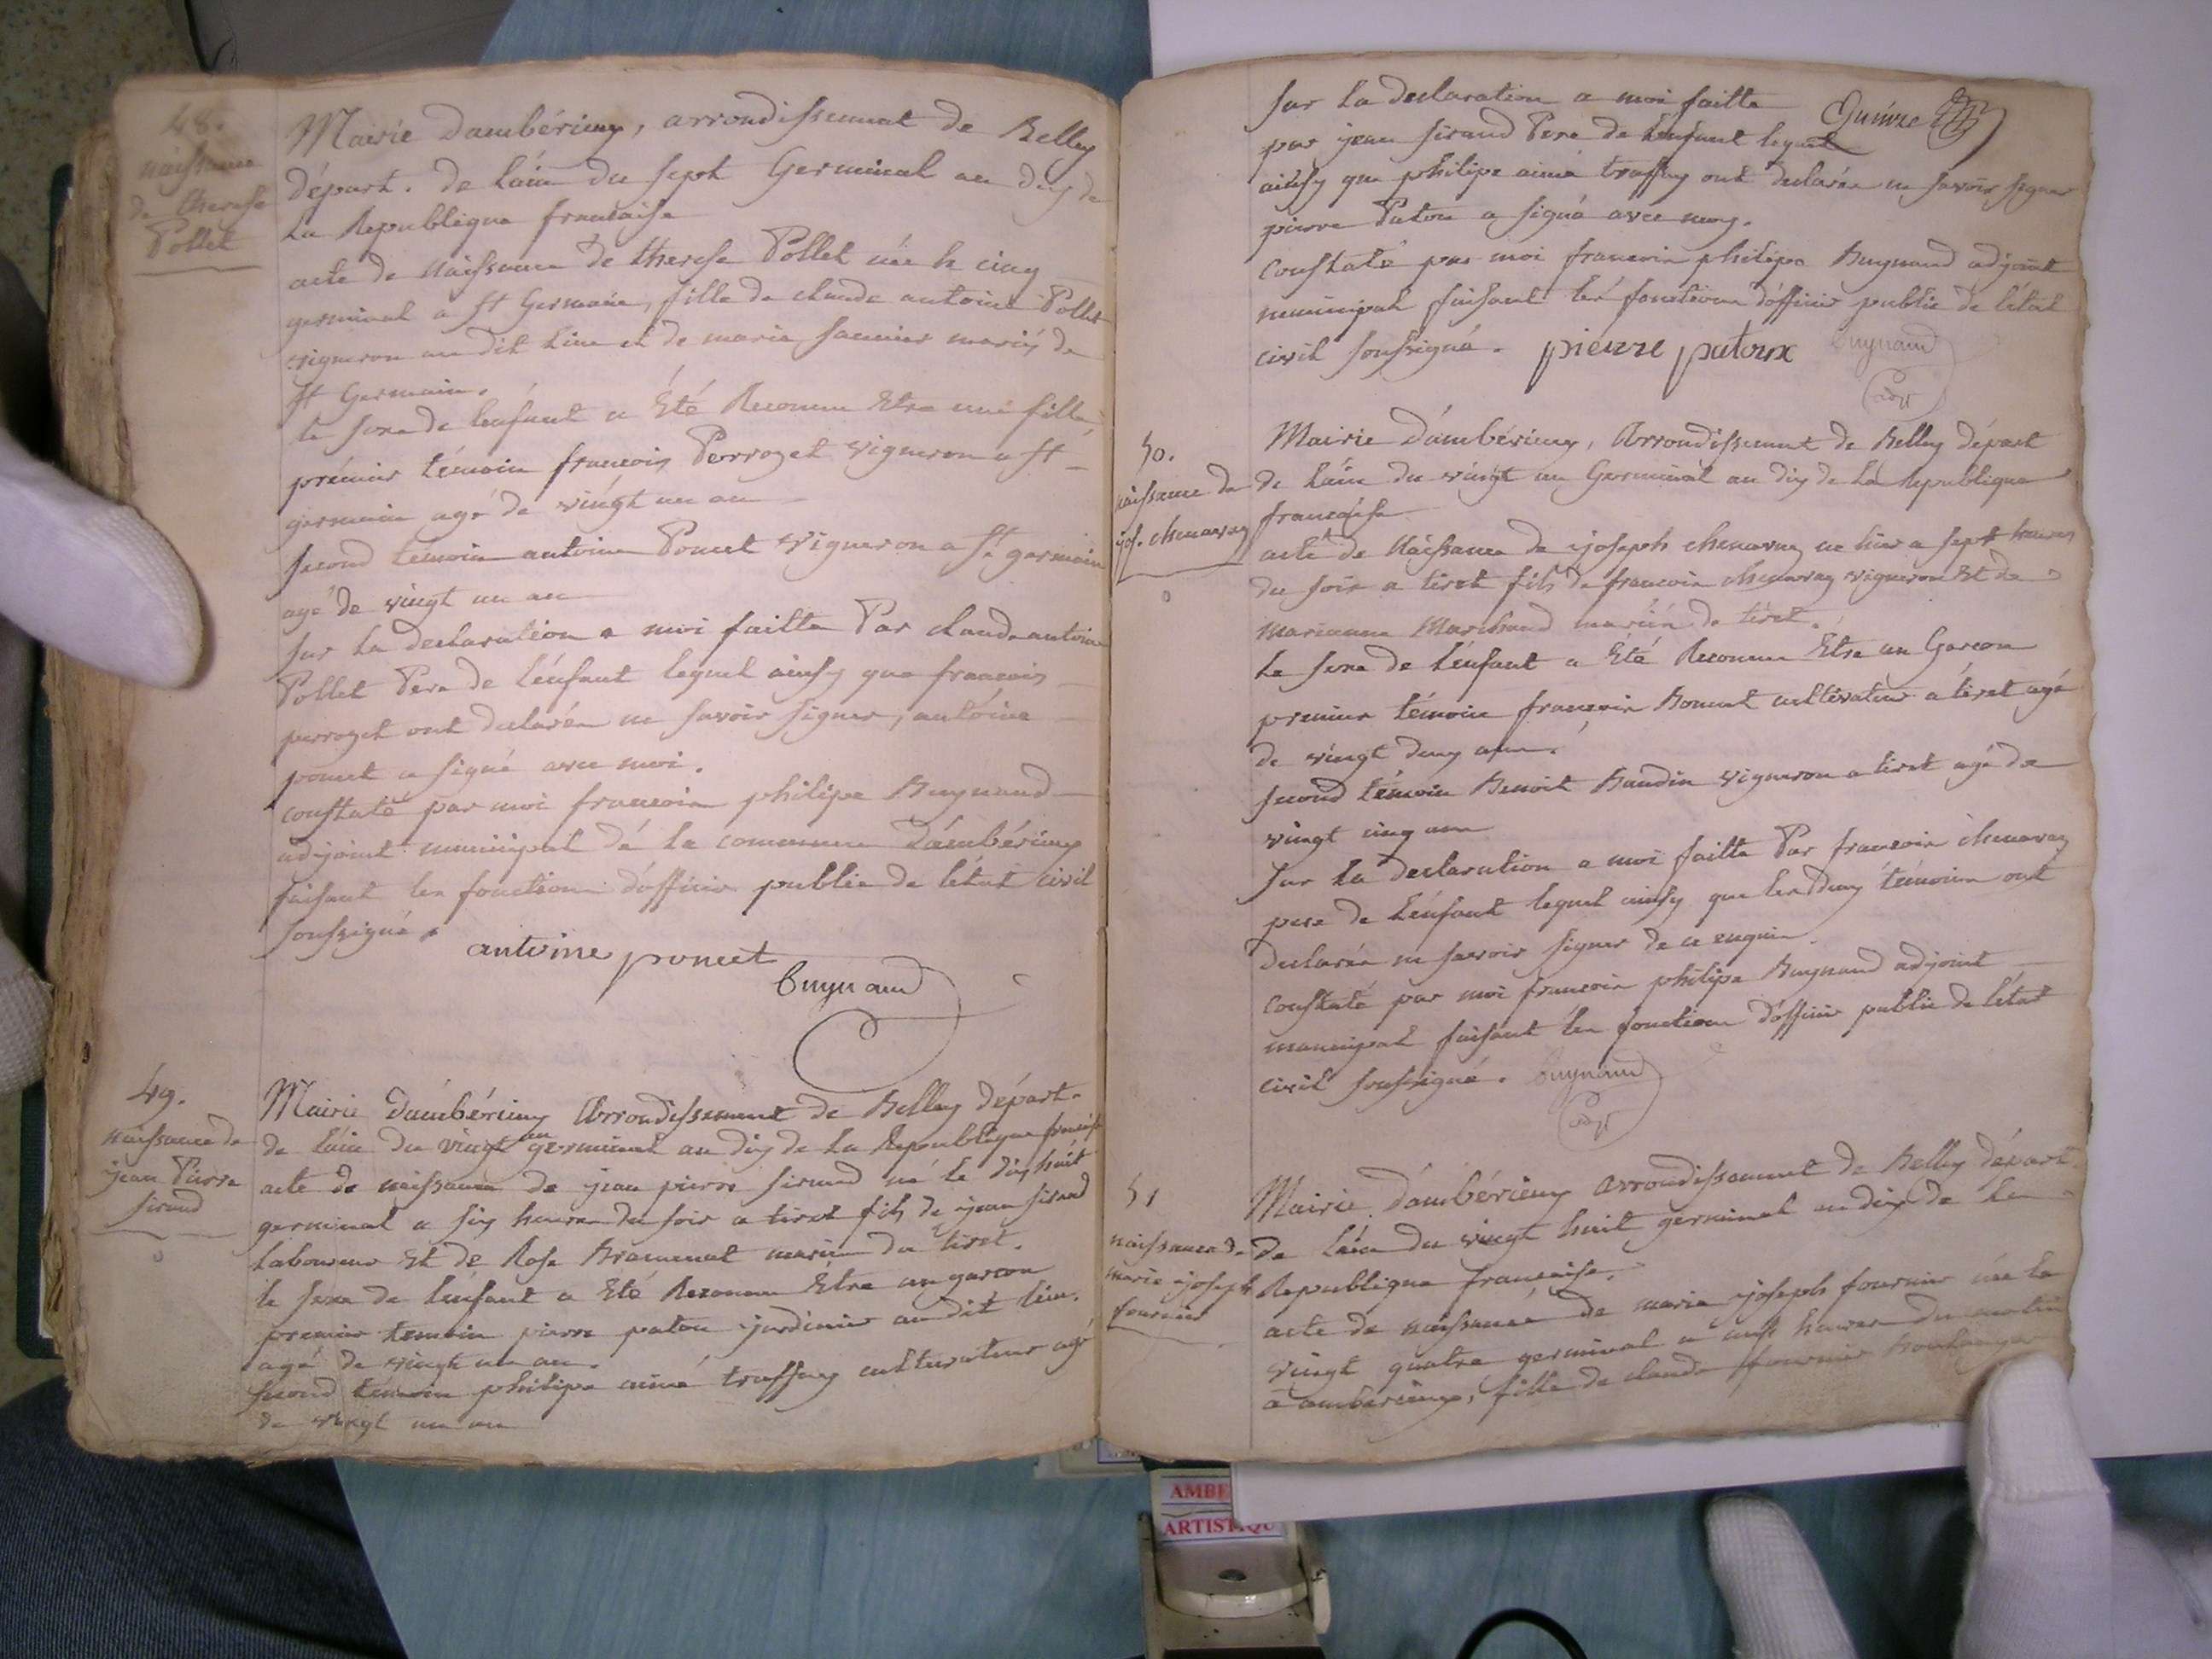 48.
naissance
de therese
Pollet
Mairie dambérieux, arrondissement de Belley
départ. de l'ain du sept Germinal an dix de
la Republique francaise
acte de Naissance de therese Pollet née le cinq
germinal a St Germain, fille de claude antoine Pollet
vigneron au dit lieu et de marie saunier mariés de
St Germain.
le sexe de lenfant a Été Reconnu Etre une fille
prémier témoin francois Perrozet vigneron a St
germain agé de vingt un an
second temoin antoine Poncet vigneron a St germain
agé de vingt un an
sur la declaration a moi faitte Par claude antoine
Pollet Pere de l'énfant lequel ainsy que francois
perrozet ont declarés ne savoir signer, antoine
poncet a signé avec moi.
constaté par moi francois philipe Buynand
adjoint municipal dé la commune d'ambérieux
faisant les fonctions d'officier public de létat civil
soussigné.
antoine poncet
Buynand
49.
naissance de
jean Pierre
sirand
Mairie d'ambérieux Arrondissement de Belley départ.
de l'ain du vingt un germinal an dix de la Republique francaise
acte de naissance de jean pierre sirand né le dix huit
germinal a six heures du soir a tiret fils de jean sirand
laboureur Et de Rose mariés du tiret.
le sexe de lénfant a Eté Reconnu Être un garcon
premier temoin pierre patou jardinier au dit lieu.
agé de vingt un an.
second temoin philipe aimé truffey cultivateur agé
de vingt un an
sur la declaration a moi faitte
par jean sirand Pere de lenfant lequel
ainsy que philipe aimé truffey ont declarés ne savoir signer
pierre Patou a signé avec nous.
constaté par moi francois philipe Buynand adjoint
municipal faisant les fonctions d'officier public de létat
civil soussigné. pierre patoux Buynand
50.
naissance de
jos. chenavaz
Mairie D'ambérieux, Arrondissement de Belley départ
de l'ain du vingt un Germinal an dix de la Republique
francaise
acte de Naissance de joseph chenavaz né hier a sept heures
du soir a tiret fils de francois chenavaz vigneron Et de
marianne Marchand mariés de tiret.
le sexe de lénfant a Été Reconnu Etre un Garcon
premier témoin francois Bonnet cultivateur a tiret agé
de vingt deux ans.
second témoin Benoit Baudin vigneron a tiret agé de
vingt cinq ans
sur la declaration a moi faitte Par francois chenavaz
pere de l'énfant lequel ainsy que les deux témoins ont
declarés ne savoir signer de ce enquis.
constaté par moi francois philipe Buynand adjoint
municipal faisant les fonctions d'officier public de létat
civil soussigné. Buynand
51
naissance de
marie joseph
fournier
Mairie d'ambérieux arrondissement de Belley départ.
de l'ain du vingt huit germinal an dix de la
Republique francaise.
acte de naissance de marie joseph fournier née le
vingt quatre germinal a onze heures du matin
a ambérieux, fille de claude fournier boulanger
AMBE
ARTISTIQU